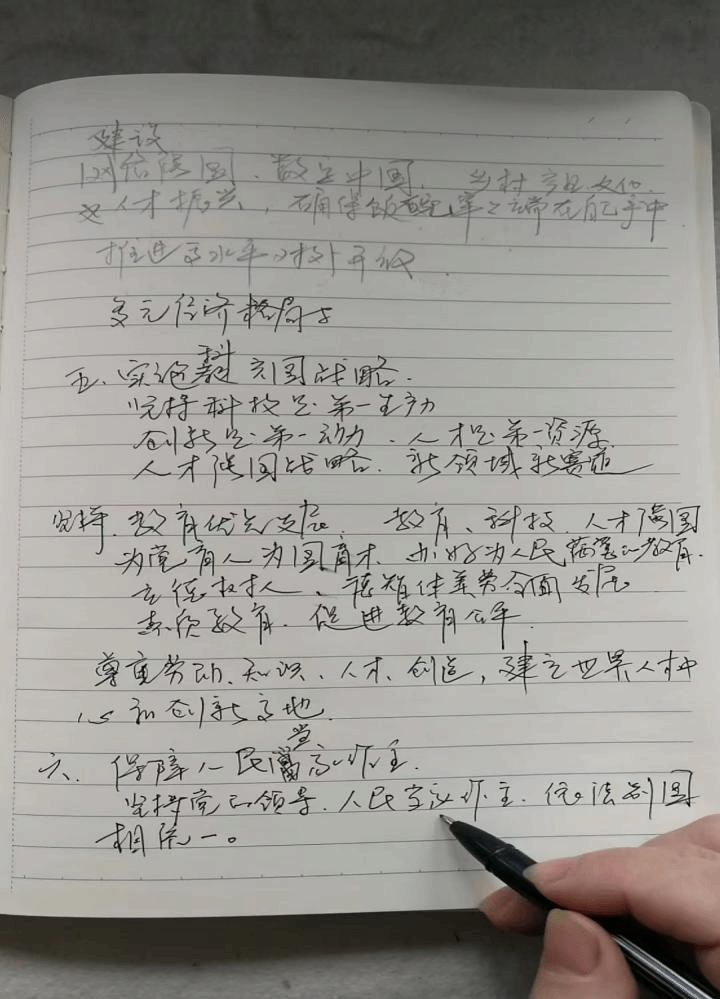 建设
网络强国、数字中国, 乡村产业文化
人才振兴, 确保饭碗牢牢端在自己手中
推进高水平对外开放
多元经济格局
五、实施科 国战略.
坚持科技是第一生产力
创新是第一动力、人才是第一资源
人才强国战略、新领域新赛道
坚持教育优先发展、教育、科技、人才强国
为党育人为国育才、办好为人民满意的教育.
立德树人、德智体美劳全面发展
素质教育、促进教育公平
尊重劳动、知识、人才、创造, 建立世界人才中
心和创新高地
当
六、保障人民 家作主.
坚持党的领导、人民当家作主、依法治国
相统一。